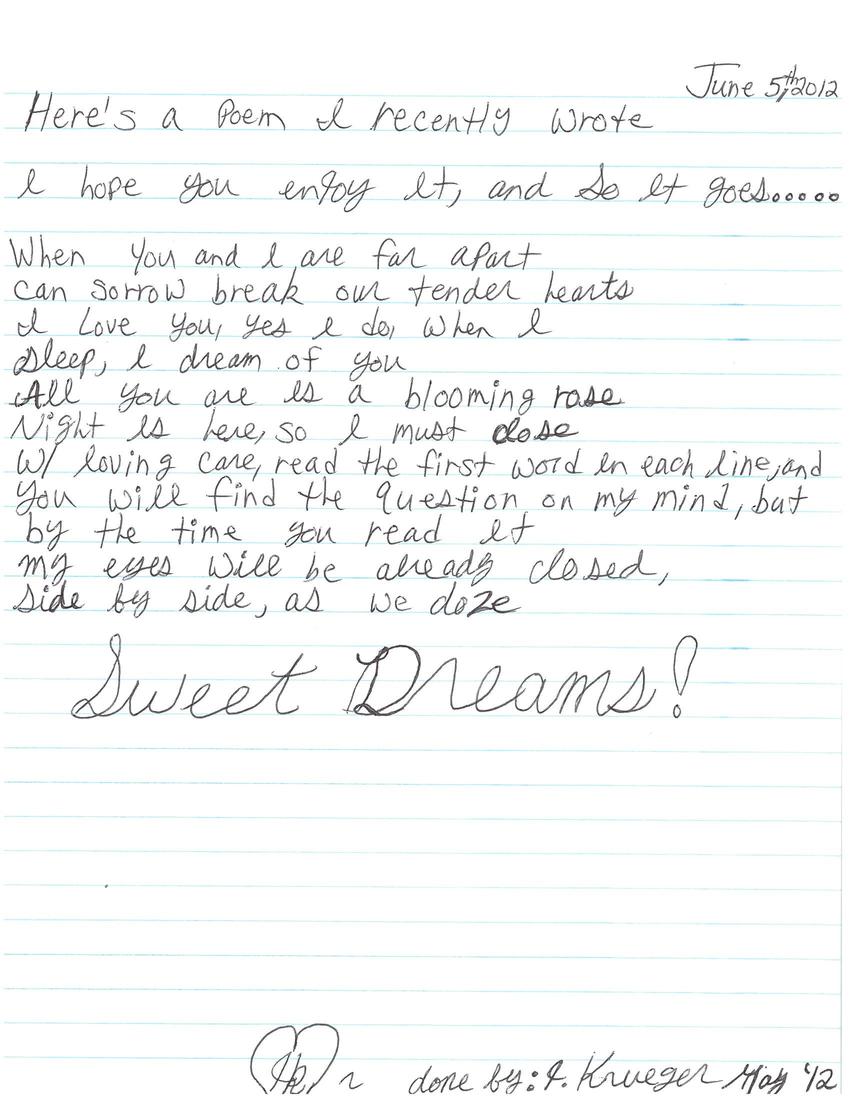 June 5th, 2012
Here's a Poem I recently wrote
I hope you enjoy It, and So It goes.....
When You and I are far apart
can sorrow break our tender hearts
I Love You, Yes I do, When I
Sleep, I dream of you
All you are Is a blooming rose
Night Is here, so I must close
W/ loving care, read the first word In each line, and
you will find the question on my mind, but
by the time you read It
my eyes will be already closed,
side by side, as we doze
Sweet Dreams!
done by: J. Krueger May '12